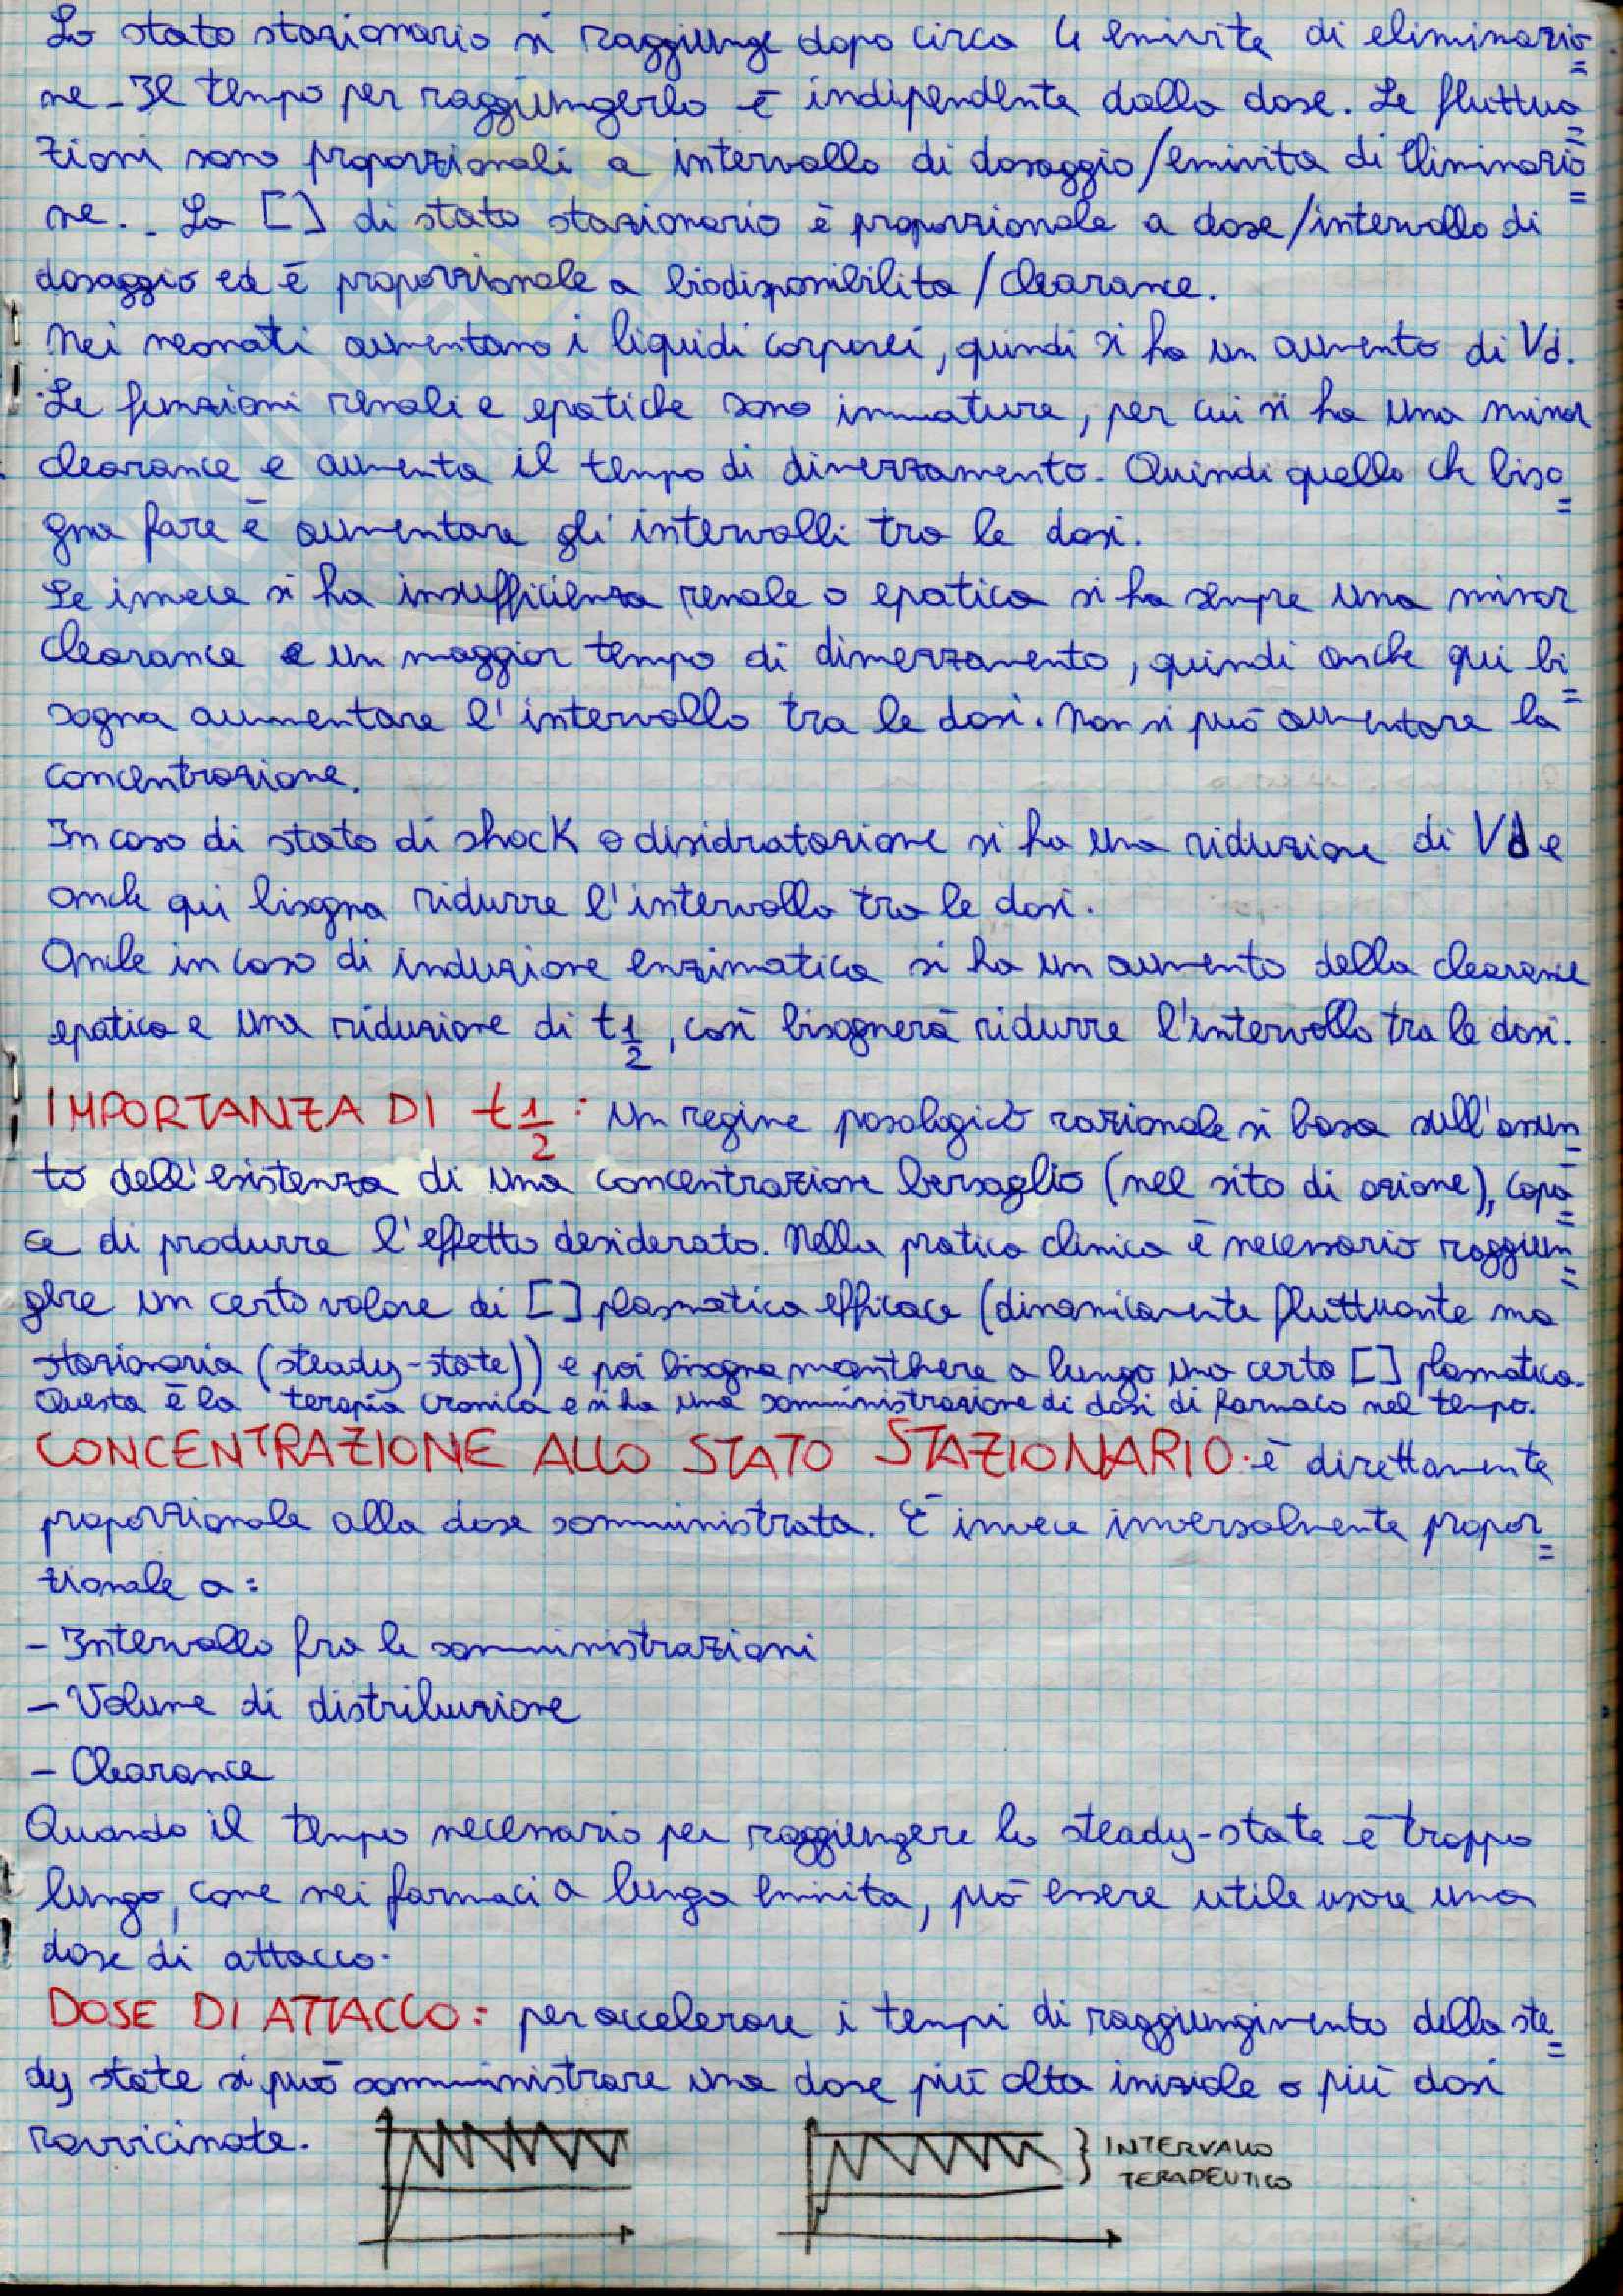 Lo stato stazionario si raggiunge dopo circa 4 emivite di eliminazio=
ne. Il tempo per raggiungerlo è indipendente dalla dose. Le fluttua=
zioni sono proporzionali a intervallo di dosaggio/emivita di eliminazio=
ne. La [ ] di stato stazionario è proporzionale a dose/intervallo di
dosaggio ed è proporzionale a biodisponibilità/clearance.
Nei neonati aumentano i liquidi corporei, quindi si ha un aumento di Vd.
Le funzioni renali e epatiche sono immature, per cui si ha una minor
clearance e aumenta il tempo di dimezzamento. Quindi quello ch biso=
gna fare è aumentare gli intervalli tra le dosi.
Se invece si ha insufficienza renale o epatica si ha sempre una minor
clearance e un maggior tempo di dimezzamento, quindi anche qui bi=
sogna aumentare l'intervallo tra le dosi. Non si può aumentare la
concentrazione.
In caso di stato di shock o disidratazione si ha una riduzione di Vd e
anche qui bisogna ridurre l'intervallo tra le dosi.
Anche in caso di induzione enzimatica si ha un aumento della clearance
epatica e una riduzione di t1/2, così bisognerà ridurre l'intervallo tra le dosi.
IMPORTANZA DI t1/2: un regime posologico razionale si basa sull'assun=
to dell'esistenza di una concentrazione bersaglio (nel sito di azione), capa=
ce di produrre l'effetto desiderato. Nella pratica clinica è necessario raggiun=
gere un certo valore di [ ] plasmatica efficace (dinamicamente fluttuante ma
stazionaria (steady-state)) e poi bisogna mantenere a lungo una certa [ ] plasmatica.
Questa è la terapia cronica e si ha una somministrazione di dosi di farmaco nel tempo.
CONCENTRAZIONE ALLO STATO STAZIONARIO: è direttamente
proporzionale alla dose somministrata. È invece inversalmente propor=
zionale a:
- Intervallo fra le somministrazioni
- Volume di distribuzione
- Clearance
Quando il tempo necessario per raggiungere lo steady-state è troppo
lungo, come nei farmaci a lunga emivita, può essere utile usare una
dose di attacco.
DOSE DI ATTACCO: per accelerare i tempi di raggiungimento dello ste=
dy state si può somministrare una dose più alta iniziale o più dosi
ravvicinate.
INTERVALLO
TERAPEUTICO